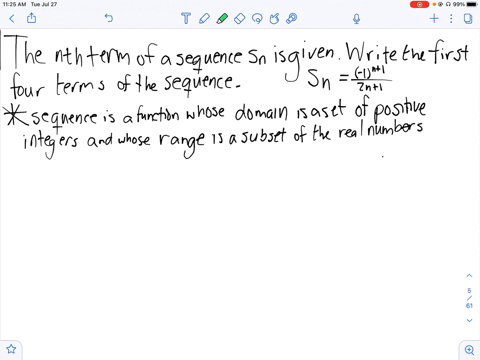 11:25 AM Tue Jul 27
99%
The nth term of a sequence Sn is given. Write the first
four terms of the sequence. Sn = (-1)^(n+1) / 2n+1
* sequence is a function whose domain is a set of positive
integers and whose range is a subset of the real numbers
5
/
61